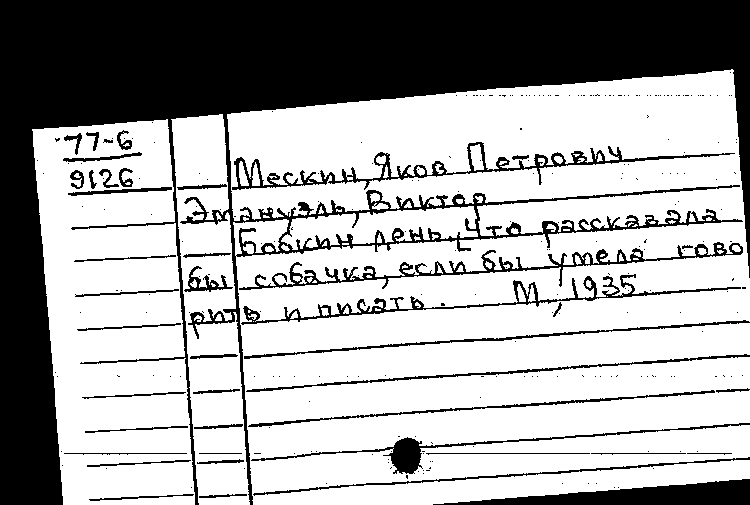 77-6
9126
Мескин, Яков Петрович
Эмануэль, Виктор
Бобкин день, Что рассказала
бы собачка, если бы умела гово
рить и писать. М, 1935.